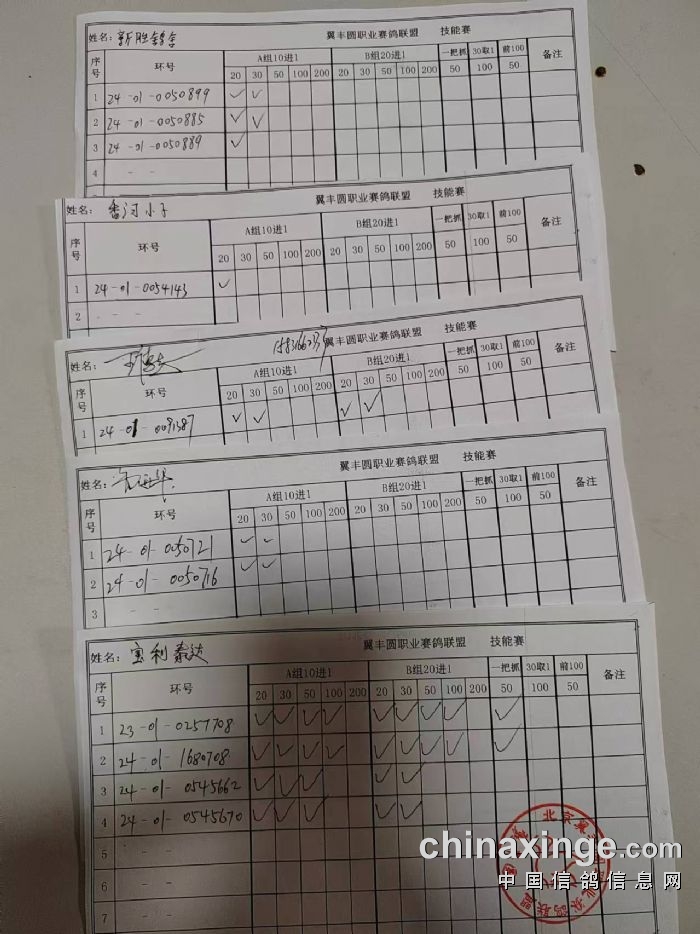 姓名: 新胜鸽舍 翼丰圆职业赛鸽联盟 技能赛
序号 环号 A组10进1 B组20进1 一把抓 30取1 前100 备注
20 30 50 100 200 20 30 50 100 200 50 100 50
1 24-01-0050899 ✓ ✓
2 24-01-0050885 ✓ ✓
3 24-01-0050889 ✓
4 - -
姓名: 香河小子 翼丰圆职业赛鸽联盟 技能赛
序号 环号 A组10进1 B组20进1 一把抓 30取1 前100 备注
20 30 50 100 200 20 30 50 100 200 50 100 50
1 24-01-0054143 ✓
2 - - -
姓名: 翼丰圆职业赛鸽联盟 技能赛
序号 环号 A组10进1 B组20进1 一把抓 30取1 前100 备注
20 30 50 100 200 20 30 50 100 200 50 100 50
1 24-01-0091387 ✓ ✓ ✓ ✓
姓名: 翼丰圆职业赛鸽联盟 技能赛
序号 环号 A组10进1 B组20进1 一把抓 30取1 前100 备注
20 30 50 100 200 20 30 50 100 200 50 100 50
1 24-01-0050721 ✓ ✓
2 24-01-0050716 ✓ ✓
3 - -
姓名: 宝利泰达 翼丰圆职业赛鸽联盟 技能赛
序号 环号 A组10进1 B组20进1 一把抓 30取1 前100 备注
20 30 50 100 200 20 30 50 100 200 50 100 50
1 23-01-0257708 ✓ ✓ ✓ ✓ ✓ ✓ ✓ ✓ ✓
2 24-01-1680708 ✓ ✓ ✓ ✓ ✓ ✓ ✓ ✓ ✓
3 24-01-0545662 ✓ ✓ ✓ ✓ ✓
4 24-01-0545670 ✓ ✓ ✓ ✓ ✓
5 - -
6 - -
7 - -
chinaxinge.com
中国信鸽信息网